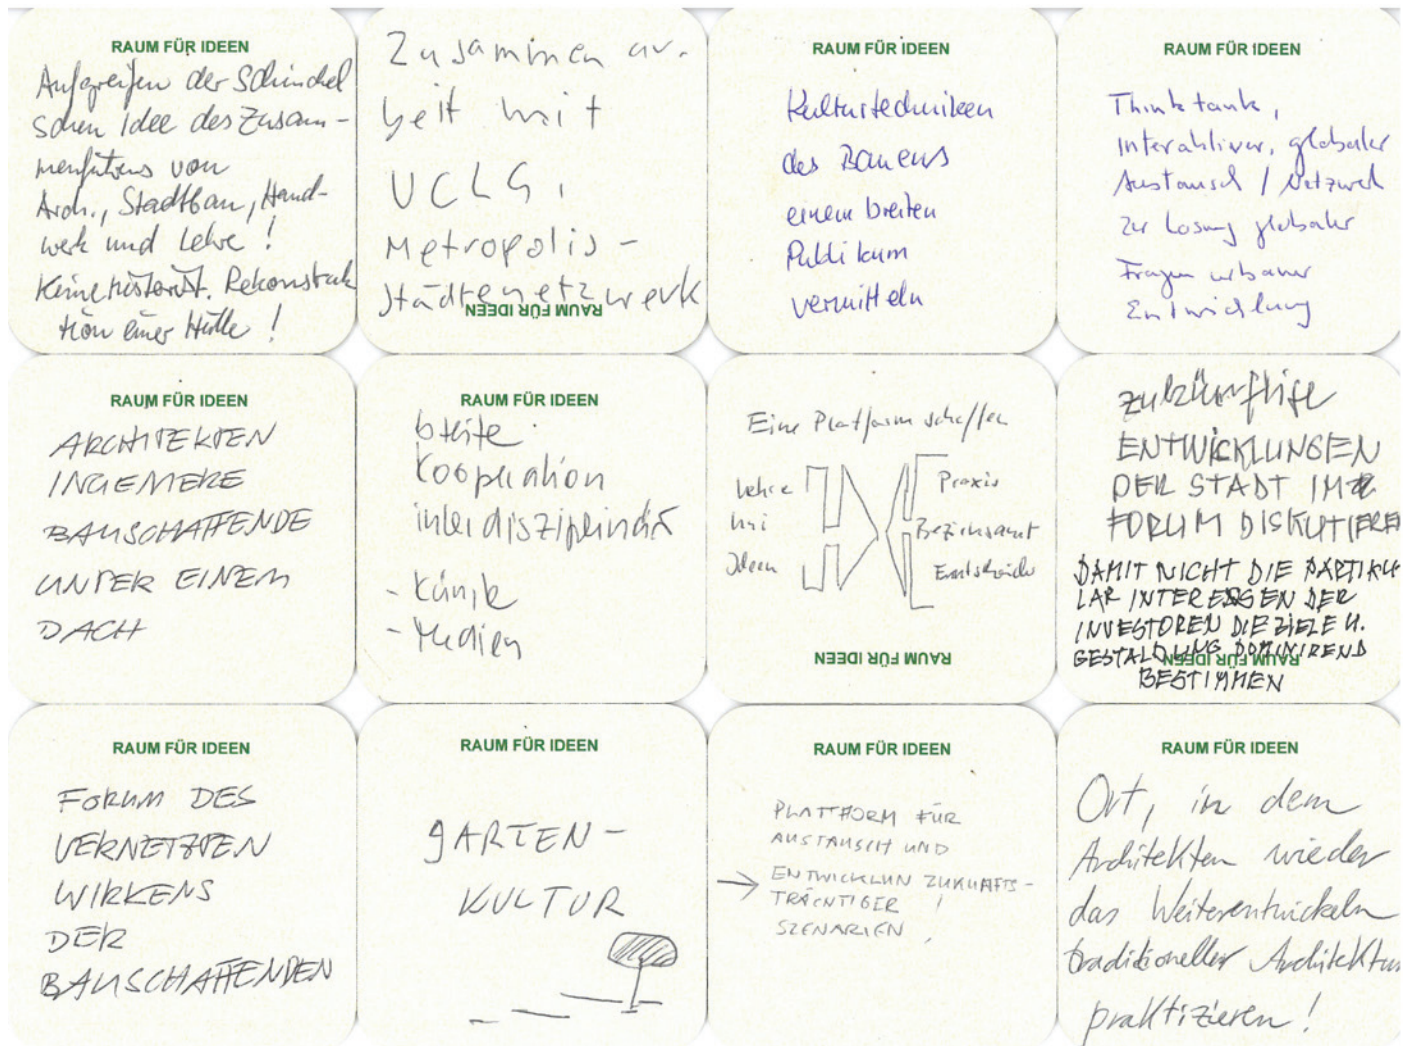 RAUM FÜR IDEEN
Aufgreifen der Schinkel
schen Idee des Zusam-
menführens von
Arch., Stadtbau, Hand-
werk und Lehre !
Keine historist. Rekonstruk
tion einer Hülle !
Zusammen ar-
beit mit
UCLG,
Metropolis-
städtenetzwerk
RAUM FÜR IDEEN
RAUM FÜR IDEEN
Kulturtechniken
des Bauens
einem breiten
Publikum
vermitteln
RAUM FÜR IDEEN
Thinktank,
Interaktiver, globaler
Austausch / Netzwerk
zur Lösung globaler
Fragen urbaner
Entwicklung
RAUM FÜR IDEEN
ARCHITEKTEN
INGENIERE
BAUSCHAFFENDE
UNTER EINEM
DACH
RAUM FÜR IDEEN
breite
Kooperation
interdisziplinär
- Künste
- Medien
Eine Platform schaffen
Lehre
Uni
Ideen
Praxis
Bezirksamt
RAUM FÜR IDEEN
zukünftige
ENTWICKLUNGEN
DER STADT IM
FORUM DISKUTIEREN
DAMIT NICHT DIE PARTIKU
LAR INTERESSEN DER
INVESTOREN DIE ZIELE U.
GESTALDUNG DOMINIREND
RAUM FÜR IDEEN
BESTIMMEN
RAUM FÜR IDEEN
FORUM DES
VERNETZTEN
WIRKENS
DER
BAUSCHAFFENDEN
RAUM FÜR IDEEN
GARTEN-
KULTUR
RAUM FÜR IDEEN
PLATTFORM FÜR
AUSTAUSCH UND
→ ENTWICKLUN ZUKUNFTS-
TRÄCHTIGER !
SZENARIEN
RAUM FÜR IDEEN
Ort, in dem
Architekten wieder
das Weiterentwickeln
traditioneller Architektur
praktizieren !